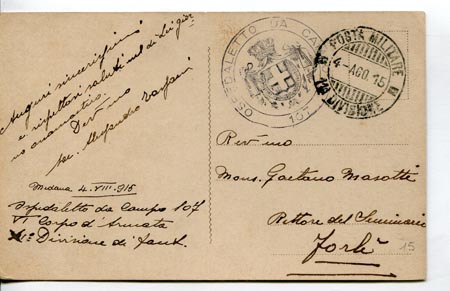 Auguri sincerissimi
e rispettosi saluti nel di Lei gior
no onomastico.
Dev.mo
Alessandro
Medana 4. VIII. 915
Ospedaletto da Campo 107
VI Corpo d'Armata
Divisione di Fant.
OSPEDALETTO DA CAMPO
107
POSTA MILITARE
4-AGO.15
DIVISIONE
Rev-mo
Mons. Gaetano Masotti
Rettore del Seminario
Forlì
15